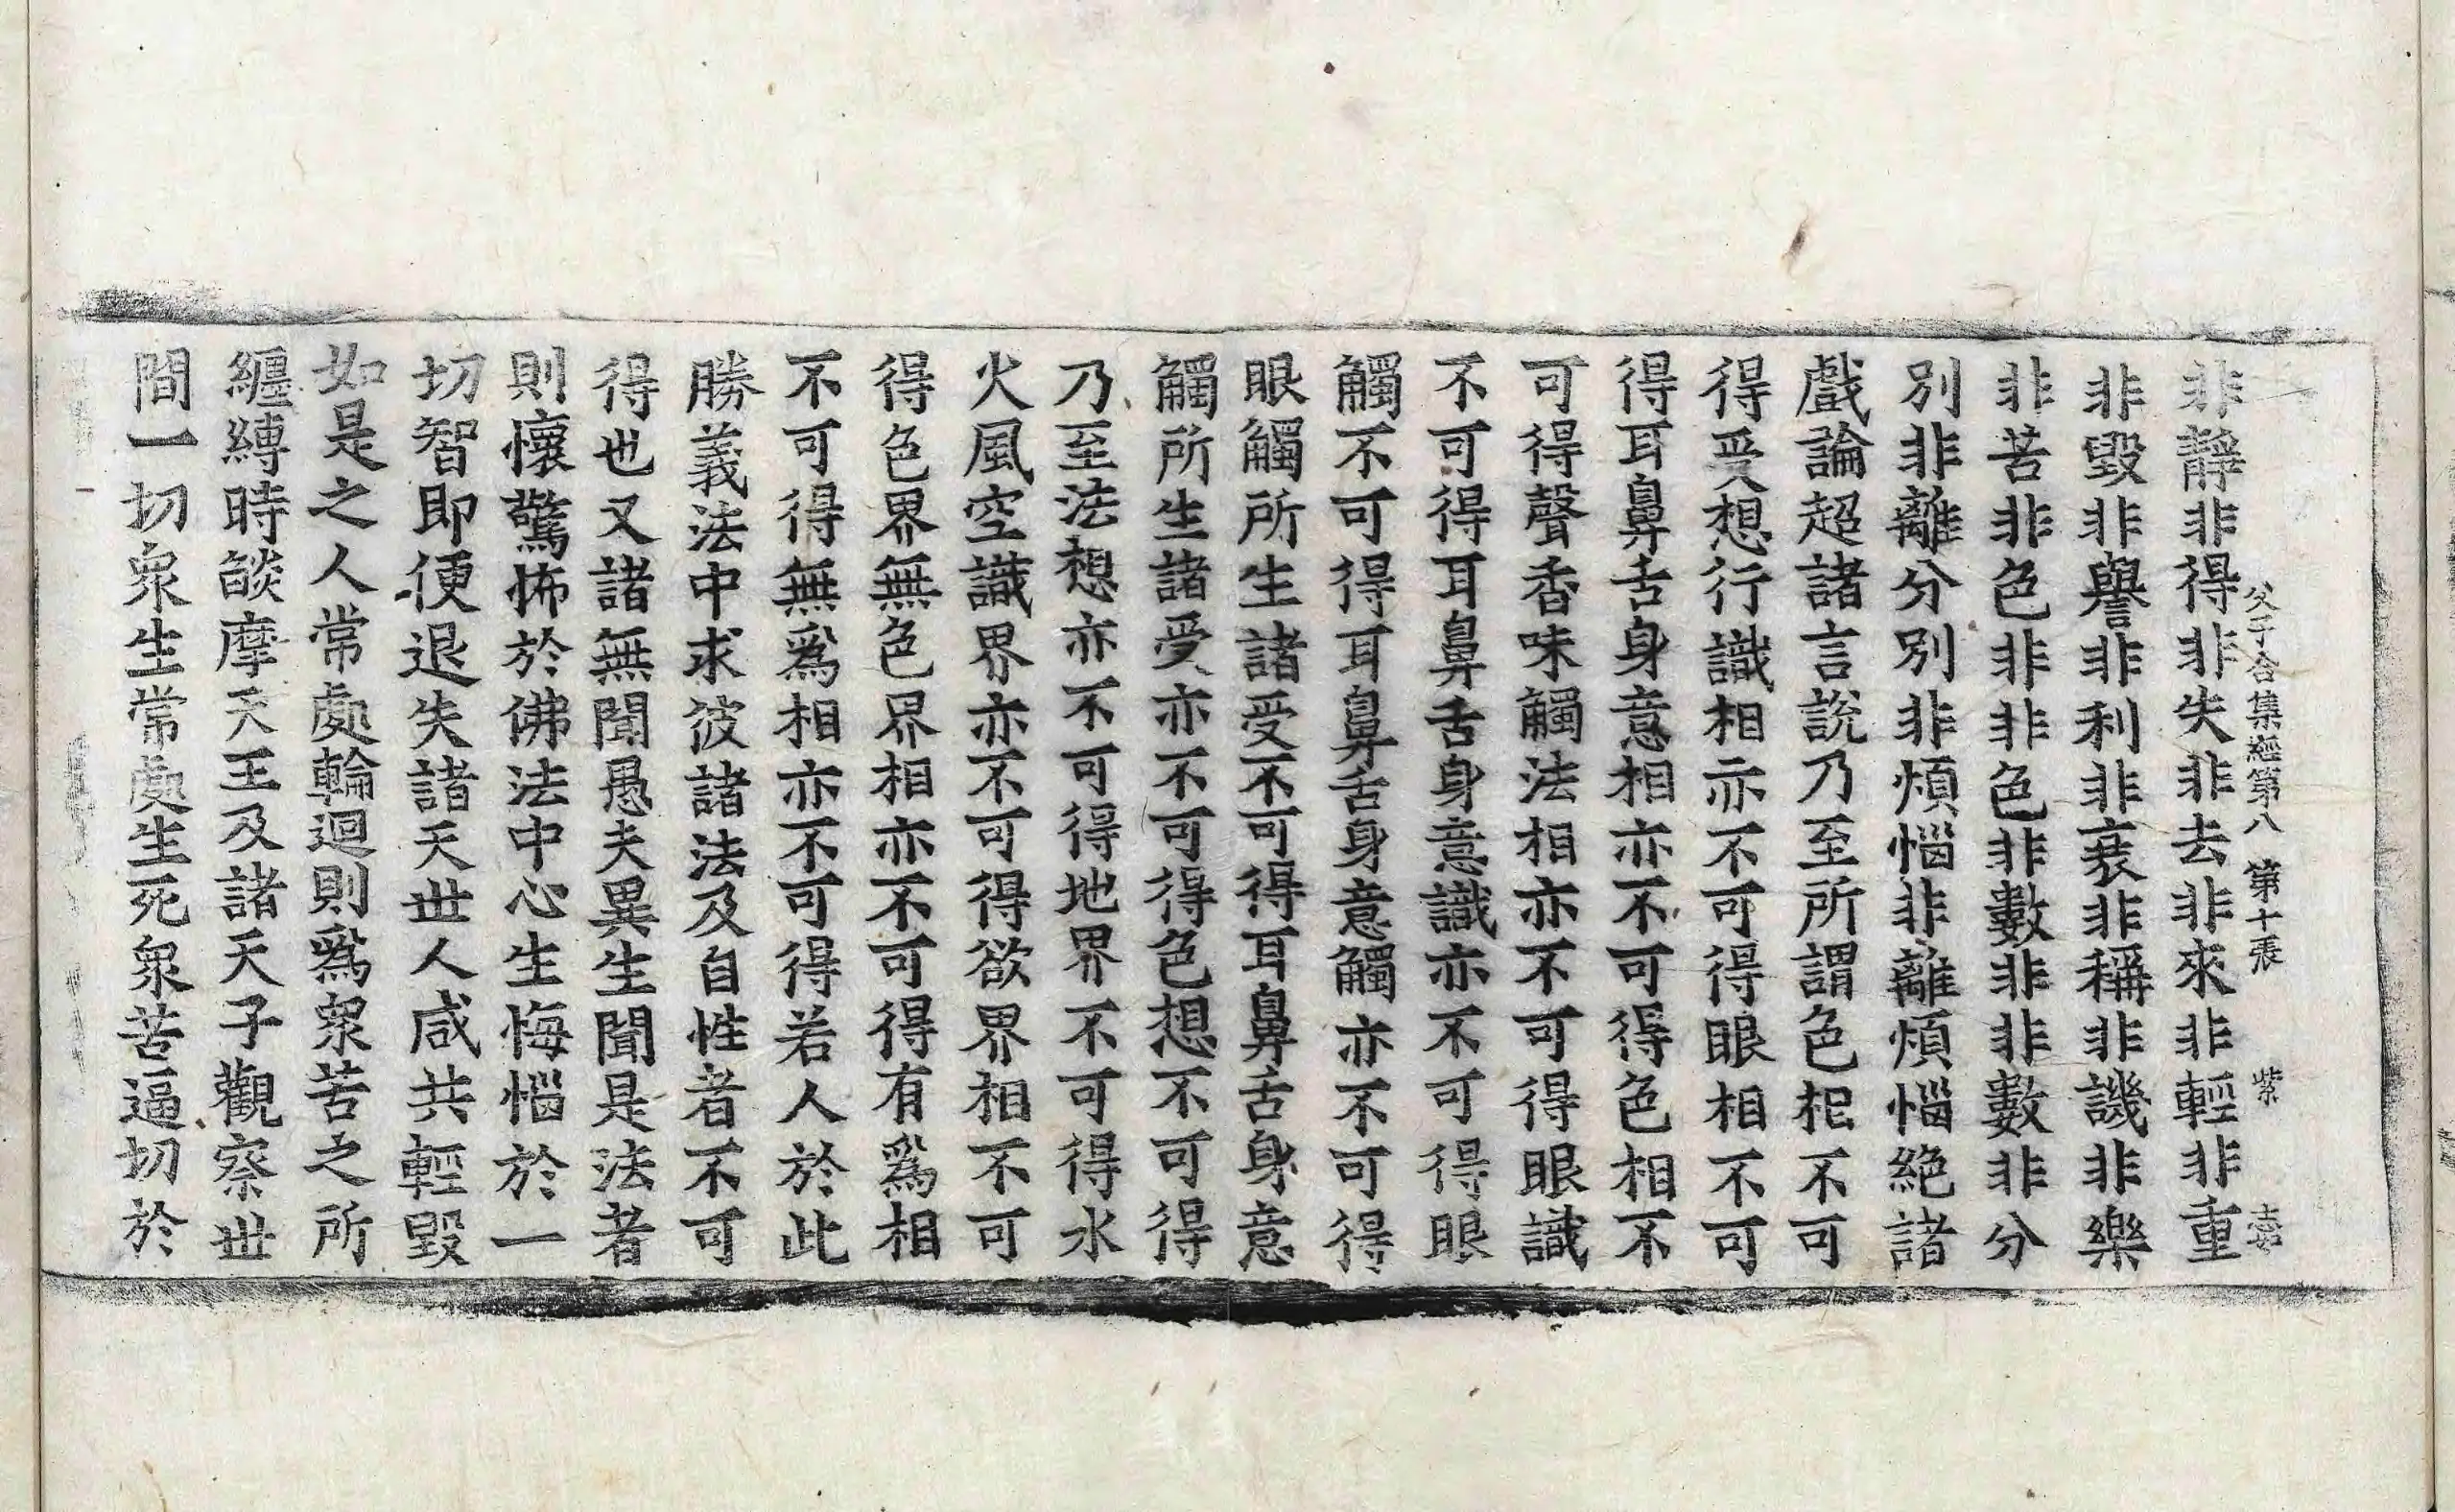 父子合集經第八 第十張 紫
非靜非得非失非去非來非輕非重
非毀非譽非利非衰非稱非譏非樂
非苦非色非非色非數非非數非分
別非離分別非煩惱非離煩惱絶諸
戲論超諸言說乃至所謂色相不可
得受想行識相亦不可得眼相不可
得耳鼻舌身意相亦不可得色相不
可得聲香味觸法相亦不可得眼識
不可得耳鼻舌身意識亦不可得眼
觸不可得耳鼻舌身意觸亦不可得
眼觸所生諸受不可得耳鼻舌身意
觸所生諸受亦不可得色想不可得
乃至法想亦不可得地界不可得水
火風空識界亦不可得欲界相不可
得色界無色界相亦不可得有爲相
不可得無爲相亦不可得若人於此
勝義法中求彼諸法及自性者不可
得也又諸無聞愚夫異生聞是法者
則懷驚怖於佛法中心生悔惱於一
切智即便退失諸天世人咸共輕毀
如是之人常處輪迴則爲衆苦之所
纏縛時燄摩天王及諸天子觀察世
間一切衆生常處生死衆苦逼切於